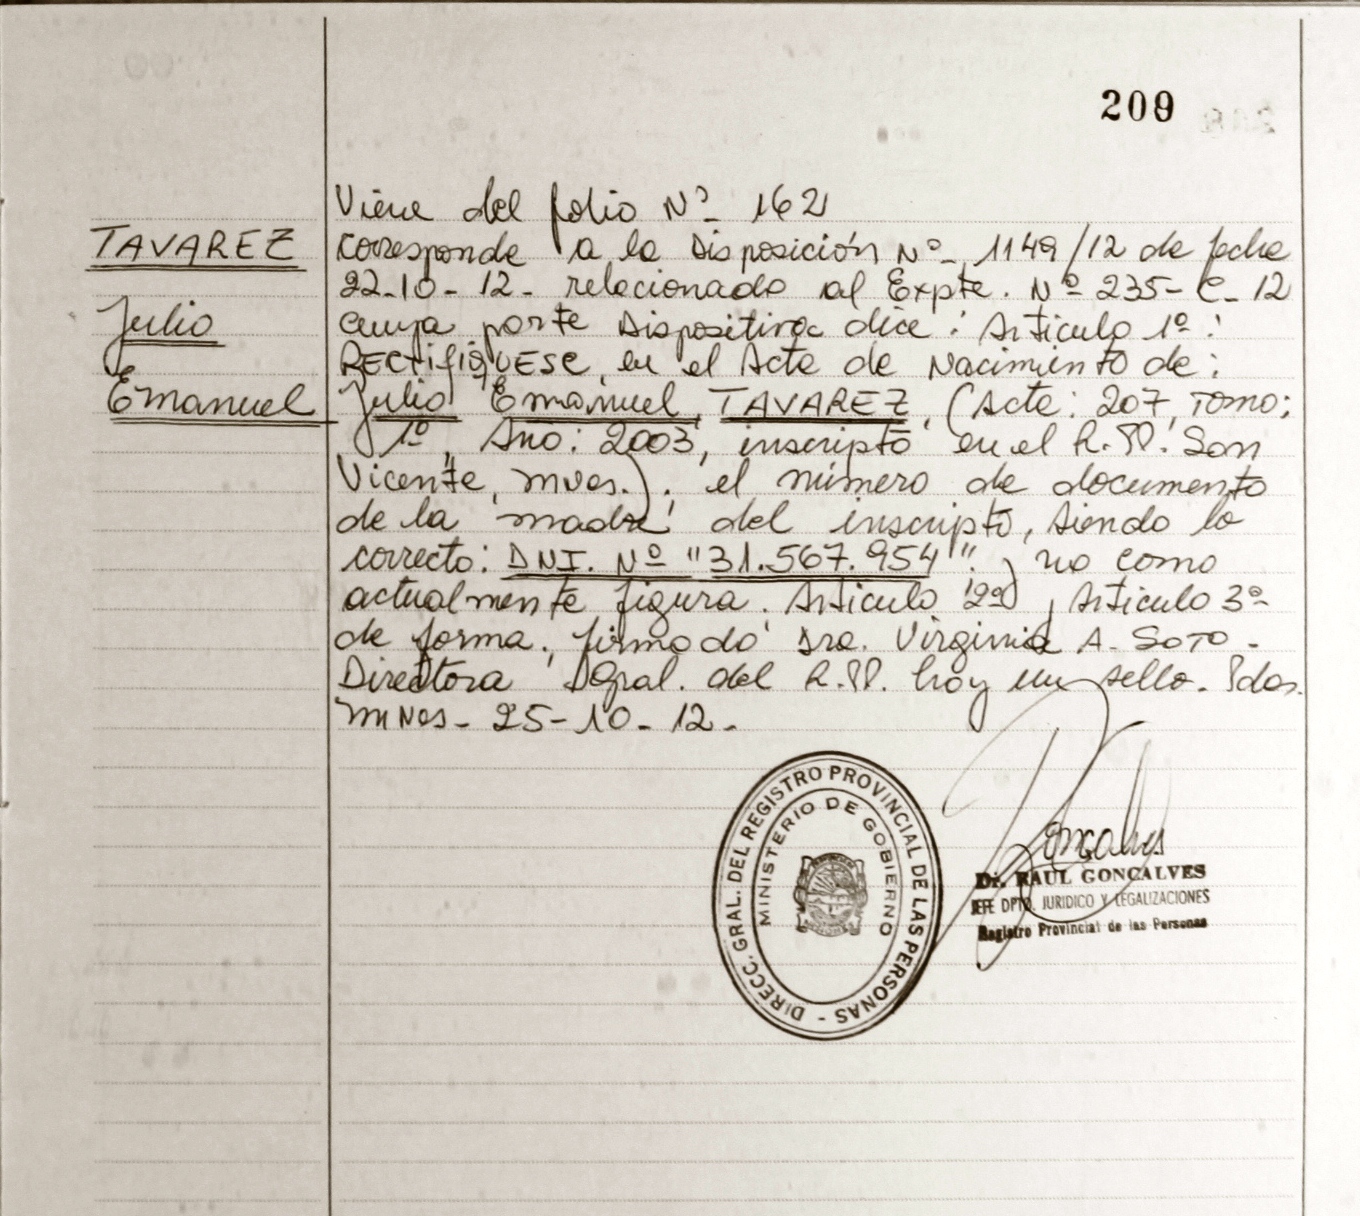 209
Viene del folio Nº 162
TAVAREZ
Julio
Emanuel
Corresponde a la Disposición Nº 1149/12 de fecha
22-10-12- relacionado al Expte. Nº 235-C-12
cuya parte Dispositiva dice: Artículo 1º:
RECTIFIQUESE, en el Acta de Nacimiento de:
Julio Emanuel, TAVAREZ, (Acta: 207, Tomo:
1º, Año: 2003, inscripto en el R.PP. San
Vicente, Mnes.). el número de documento
de la madre del inscripto, siendo lo
correcto: DNI. Nº "31.567.954". y no como
actualmente figura. Artículo 2º y Artículo 3º
de forma. firmado Dra. Virginia A. SOTO-
Directora Gral. del R.PP. hay un sello. Pdas.
Mnes- 25-10-12-
DIRECC. GRAL. DEL REGISTRO PROVINCIAL DE LAS PERSONAS -
MINISTERIO DE GOBIERNO
Gonçalves
Dr. RAUL GONCALVES
JEFE DPTO. JURIDICO Y LEGALIZACIONES
Registro Provincial de las Personas